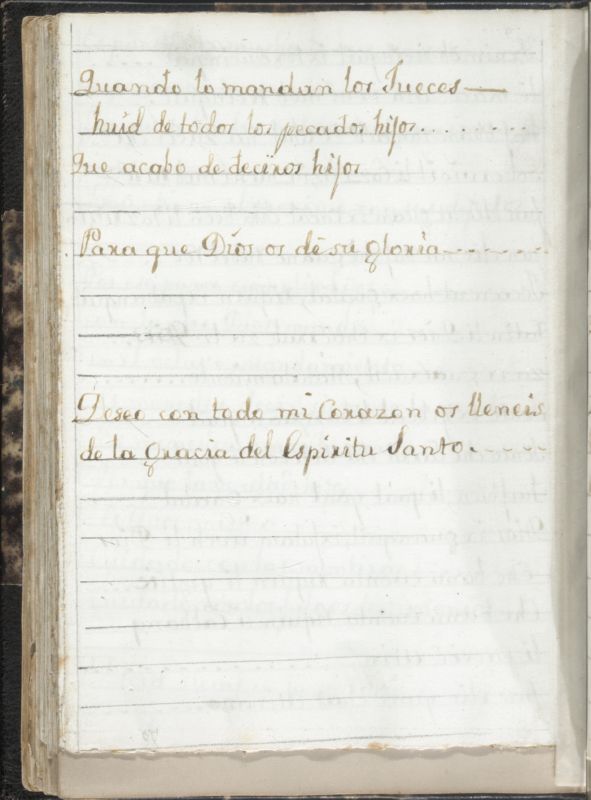 Quando lo mandan los Jueces —
huid de todos los pecados hijos........
Que acabo de deciros hijos
Para que Dios os dé su gloria........
Deseo con todo mi Corazon os lleneis
de la gracia del Espiritu Santo.----